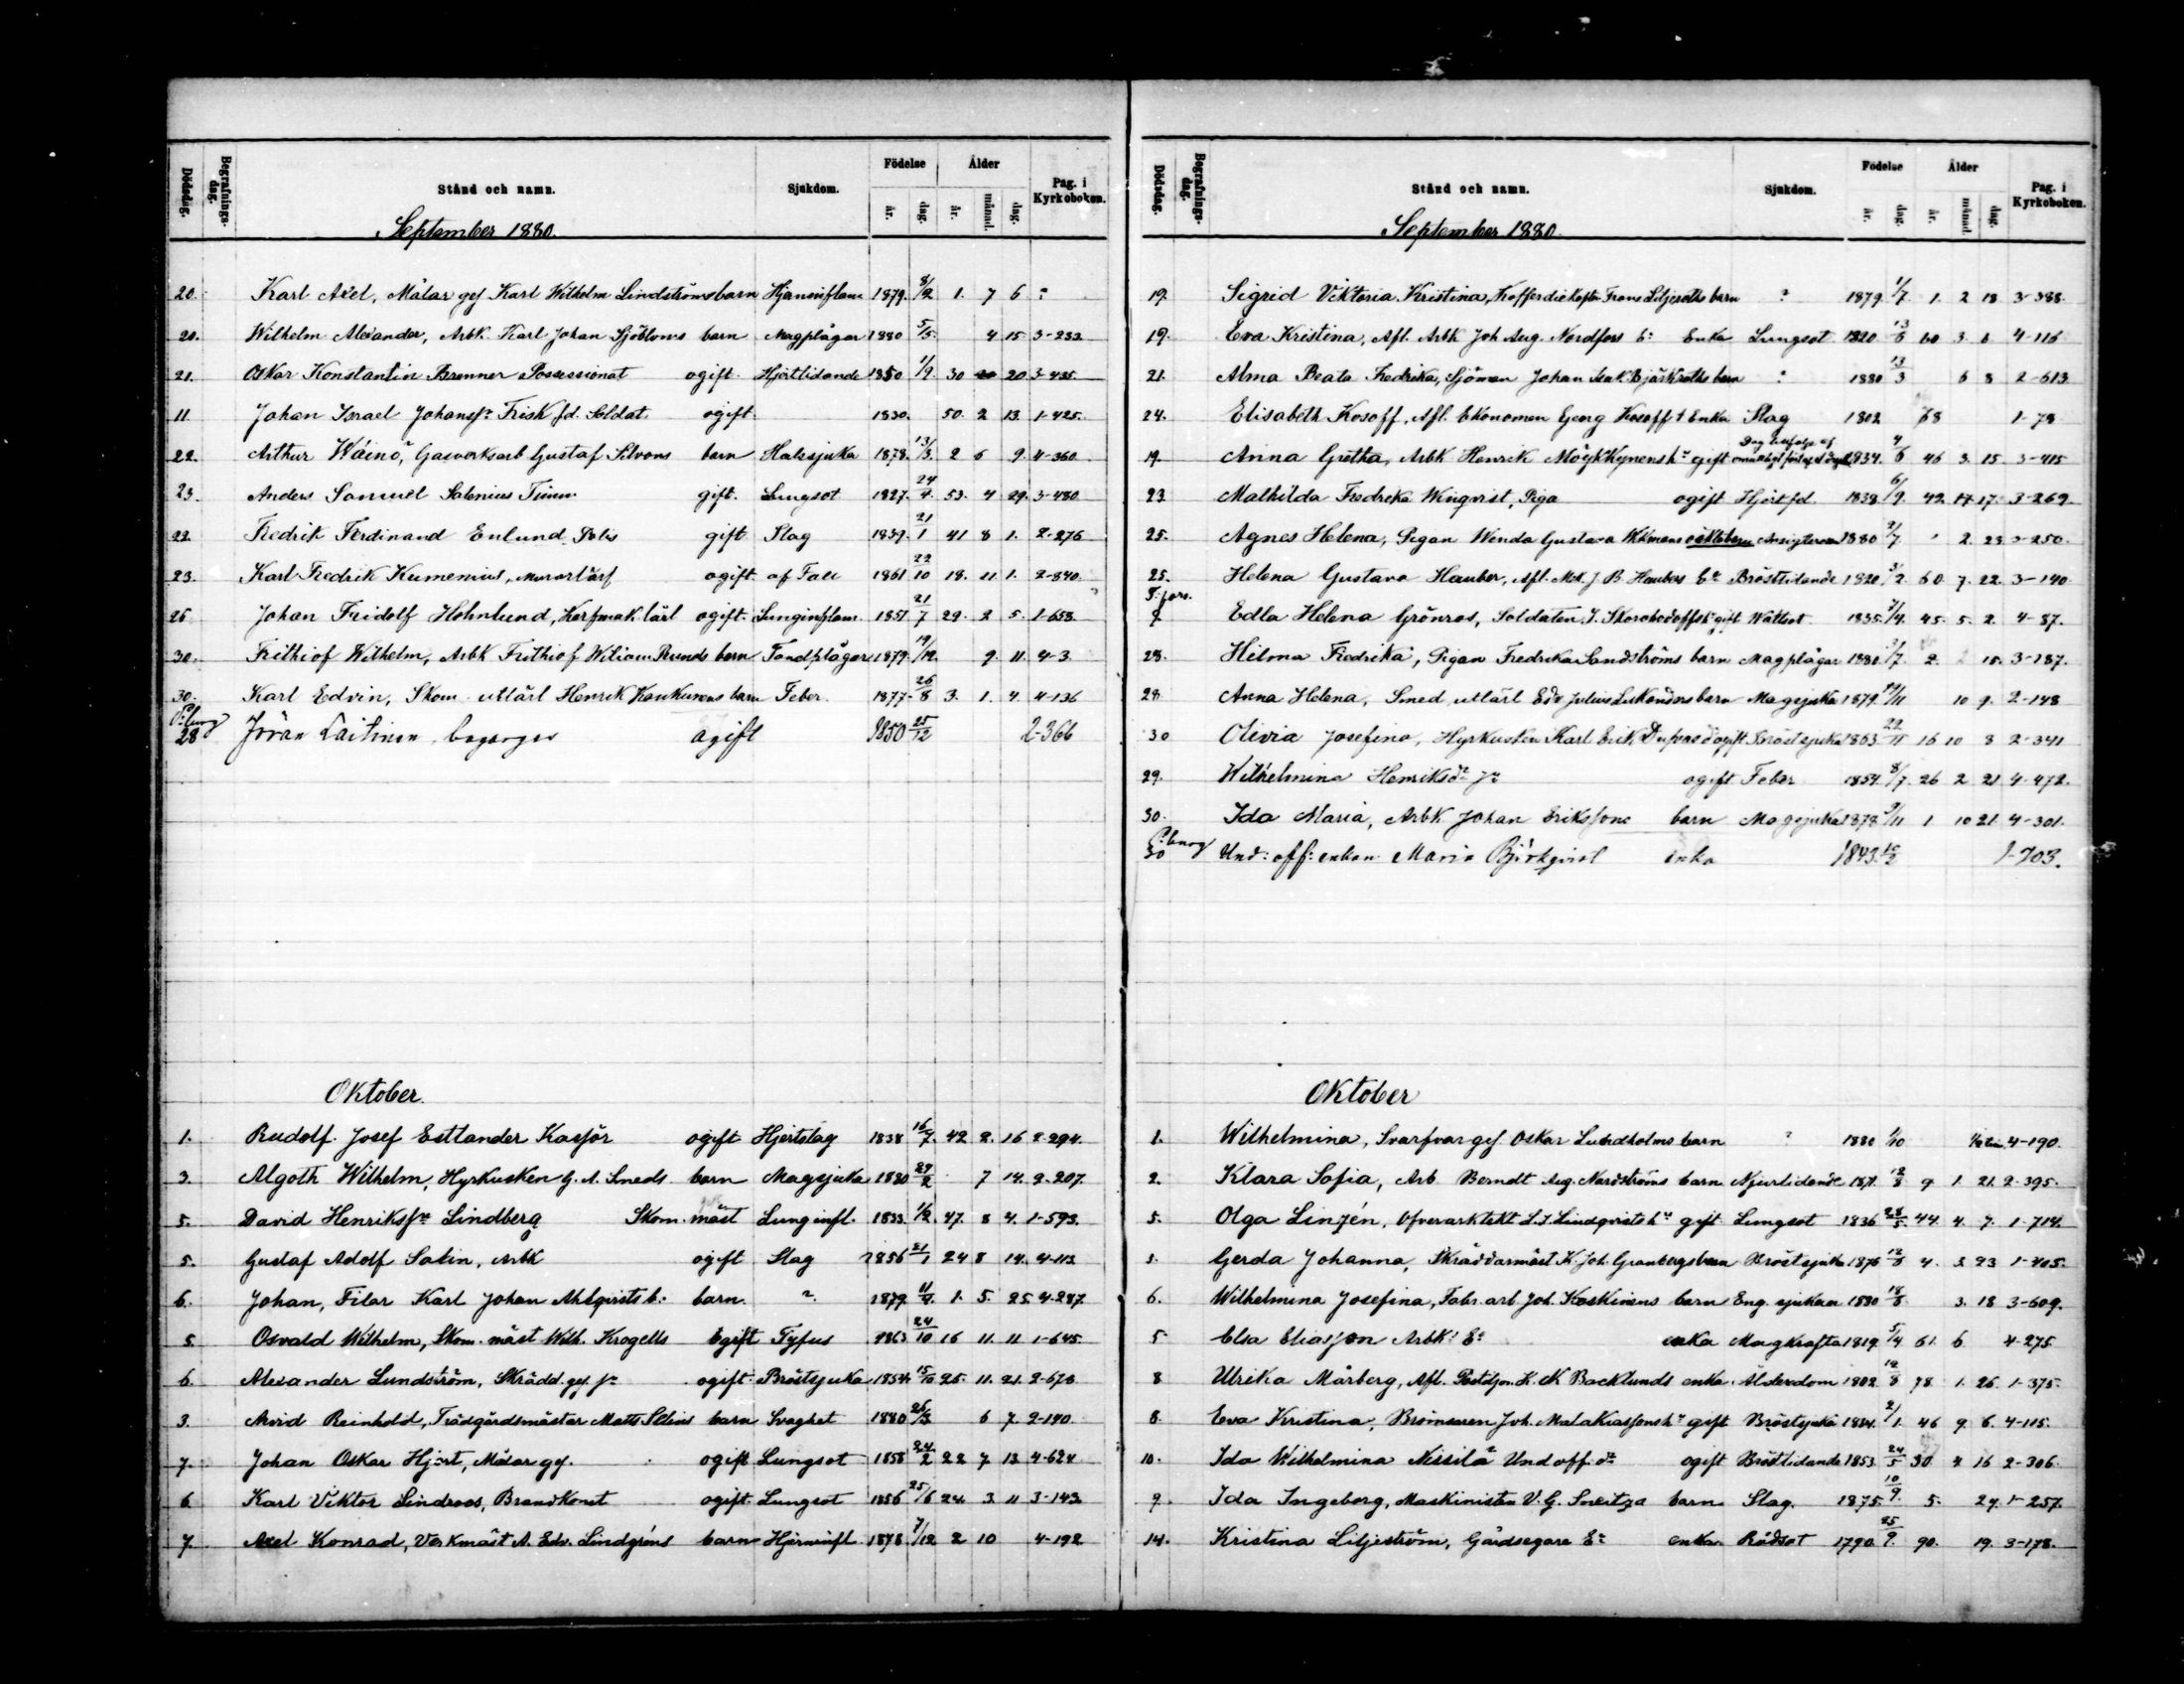 Dödsdag. Begrafnings-dag. Stånd och namn. Sjukdom. Födelse år. dag. Ålder år. månad. dag. Pag. i Kyrkoboken.
September 1880.
20. Karl Axel, Målar ges Karl Wilhelm Lindströms barn Hjerninflam 1879. 8/2 1. 7 6 ?
20. Wilhelm Alexander, Arbk. Karl Johan Sjöbloms barn Magplågor 1880 5/5. 4 15 3-233.
21. Oskar Konstantin Brenner Possessionat ogift Hjertlidande 1850 1/9. 30 20 3-435.
11 Johan Israel Johanss: Frisk fd. Soldat. ogift 1830. 50. 2 13. 1-425.
22. Arthur Wäinö, Gasverksarb Gustaf Silvons barn Halssjuka 1878. 13/3. 2 6 9. 4-360
23. Anders Samuel Salenius gift. Lungsot 1827. 24/4. 53. 4 29. 3-480
22. Fredrik Ferdinand Enlund, Polis gift Slag 1839. 21/1 41 8 1. 2-276
23. Karl Fredrik Kumenius, Murarlärl ogift af Fall 1861 22/10 18. 11. 1. 2-840.
26 Johan Fridolf Holmlund, Korfmak. lärl ogift. Lunginflam. 1851 21/7 29. 2 5. 1-658.
30. Frithiof Wilhelm, Arbk Frithiof Wiliam Runds barn Tandplågor 1879. 19/12. 9. 11. 4-3.
30. Karl Edvin, Skom. utlärl Henrik Kaukunens barn Feber. 1877. 26/8 3. 1. 4. 4-136
28 Jöran Laitinen, bagarges ogift 1850 25/12 2-366
Oktober.
1. Rudolf Josef Estlander Kassör ogift Hjertslag 1838 16/7. 42 2. 16 2-294.
3. Algoth Wilhelm, Hyrkusken G. A. Smeds barn Magsjuka 1880 27/2 7 14. 2-207.
5. David Henrikss: Lindberg Skom. mäst Lunginfl. 1833. 1/2. 47. 8 4. 1-593.
5. Gustaf Adolf Salin, Arbk ogift Slag 1856 21/1 24 8 14. 4-113.
6. Johan, Filar Karl Johan Ahlqvists b: barn. ? 1879. 11/4. 1. 5. 25 4-287.
5. Osvald Wilhelm, Skom. mäst Wilh. Krogells ogift Tyfus 1863 24/10 16 11. 11 1-645.
6. Alexander Lundström, Skrädd. ges. ogift Bröstsjuka 1854 15/10 25. 11. 21. 2-673
3. Arvid Reinhold, Trädgårdsmästar Matts Selins barn Svaghet 1880 26/3. 6 7. 2-140
7. Johan Oskar Hjort, Målarges. ogift Lungsot 1858 24/2 22 7 13. 4-624
6 Karl Viktor Lindroos, Brandkonst ogift Lungsot 1856 25/6 24. 3. 11 3-143.
7. Axel Konrad, Verkmäst A. Edv. Lindgréns barn Hjerninfl 1878. 7/12 2 10 4-192
Dödsdag. Begrafnings-dag. Stånd och namn. Sjukdom. Födelse år. dag. Ålder år. månad. dag. Pag. i Kyrkoboken.
September 1880.
19. Sigrid Viktoria Kristina, Kofferdiekapten Frans Liljeroths barn ? 1879. 1/7. 1. 2 18 3-388.
19. Eva Kristina, Afl. Arbk Joh Aug. Nordfors E: Enka Lungsot 1820. 13/6 60 3. 6. 4-116
21. Alma Beata Fredrika, Sjöman Johan barn ? 1880 13/3 6 8 2-613.
24. Elisabeth Kosoff, Afl. Ekonomen Georg Kosoff + Enka Slag 1802 78 1-78
19. Anna Gretha, Arbk Henrik h: gift 1834. 4/6 46 3. 15. 3-415
23 Mathilda Fredrika Winqvist, Piga ogift Hjertfel 1838. 6/9. 42. 17. 3-269
25. Agnes Helena, Pigan Wenda Gustava Wikmans oäkta barn 1880 2/7 2. 23 3-250.
25. Helena Gustava Hauber, Afl. J B Haubers E: Bröstlidande 1820. 3/2. 60. 7. 22. 3-140
Edla Helena Grönros, Soldaten J. Skorohodoffs h: gift Wattsot 1835. 7/4. 45. 5. 2. 4-87.
28. Hilma Fredrika, Pigan Fredrika Sandströms barn Magplågor 1880. 7. 2. 15. 3-187.
28. Anna Helena, Smed utlärl Edv Julius Lukanders barn Magsjuka 1879. 19/11 10 9. 2-148
30 Olivia Josefina, Hyrkusken Karl Erik ogift Bröstsjuka 1863. 22/11 16 10 8 2-341
29. Wilhelmina Henriksd: ogift Feber 1854. 8/7. 26 2 21. 4-472.
30. Ida Maria, Arbk. Johan Erikssons barn Magsjuka 1878 9/11 1 10 21. 4-301.
30 Und: off: enkan Maria Björkqvist enka 1843. 10/2 1-703.
Oktober
1. Wilhelmina, Svarfvarges. Oskar Lundholms barn ? 1880 1/10 4-190.
2. Klara Sofia, Arb Berndt Aug. Nordströms barn Njurlidande 1871. 12/8 9 1. 21. 2-395.
5. Olga Linzén, Öfverarktekt L. J. Lindqvists h: gift Lungsot 1836 28/5. 44. 4. 7. 1-714.
5. Gerda Johanna, Skräddarmäst K. Joh. Granbergs barn Bröstsjuka 1876 12/8 4. 3. 23 1-405.
6. Wilhelmina Josefina, Fabr. arb Joh. Koskinens barn Eng. sjukan 1880 18/6 3. 18 3-609.
5 Elsa Eliasson Arbk: E: enka Magkräfta 1819. 5/4 61. 6 4-275.
8 Ulrika Mårberg, Afl. Postiljon K. K Backlunds enka Ålderdom 1802. 12/8 78 1. 26. 1-375.
8. Eva Kristina, Bromsaren Joh. Malakiassons h: gift Bröstsjuka 1834. 2/1. 46 9. 6. 4-115.
10. Ida Wilhelmina Nissilä Und off. d: ogift Bröstlidande 1853. 24/5 30 4 16 2-306.
9. Ida Ingeborg, Maskinisten V. G. Sneitza barn Slag. 1875. 10/9. 5. 29. 1-257.
14. Kristina Liljeström, Gårdsegare E: enka Rödsot 1790. 25/9. 90. 19. 3-178.